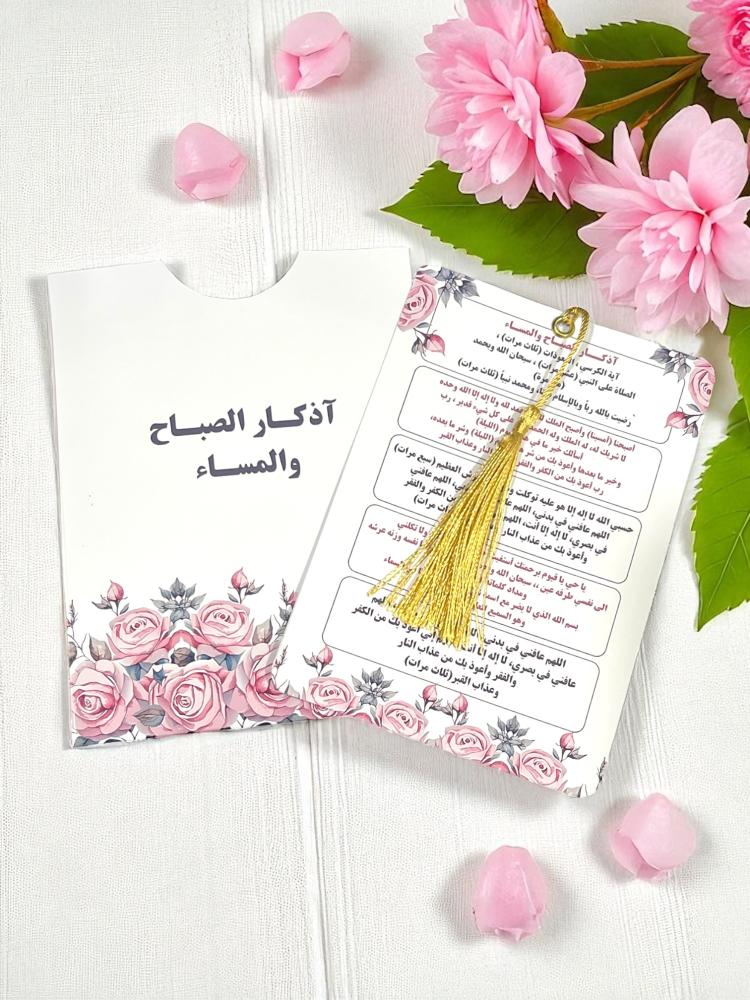 آذكـار الصبـاح
والمسـاء
آذكـار الصباح والمسـاء
آية الكرسي ، المعوذات (ثلاث مرات) ،
الصلاة على النبي (عشر مرات) ، سبحان الله وبحمده
رضيت بالله رباً وبالإسلام ومحمد نبياً (ثلاث مرات)
أصبحنا (أمسينا) وأصبح الملك لله ولا إله إلا الله وحده
لا شريك له، له الملك وله الحمد على كل شيء قدير ، رب
أسألك خير ما في (الليلة)
وخير ما بعدها وأعوذ بك من شر (الليلة) وشر ما بعدها
رب أعوذ بك من الكفر والفقر النار وعذاب القبر
حسبي الله لا إله إلا هو عليه توكلت العظيم (سبع مرات)
اللهم عافني في بدني، اللهم اللهم عافني
في بصري، لا إله إلا أنت، اللهم من الكفر والفقر
وأعوذ بك من عذاب النار
يا حي يا قيوم برحمتك ولا تكلني
الى نفسي طرفة عين ،، سبحان الله نفسه وزنة عرشه
ومداد كلماته
بسم الله الذي لا يضر مع
وهو السميع
اللهم عافني في بدني، اللهم
عافني في بصري، لا إله إلا أنت، أعوذ بك من الكفر
والفقر وأعوذ بك من عذاب النار
وعذاب القبر(ثلاث مرات)